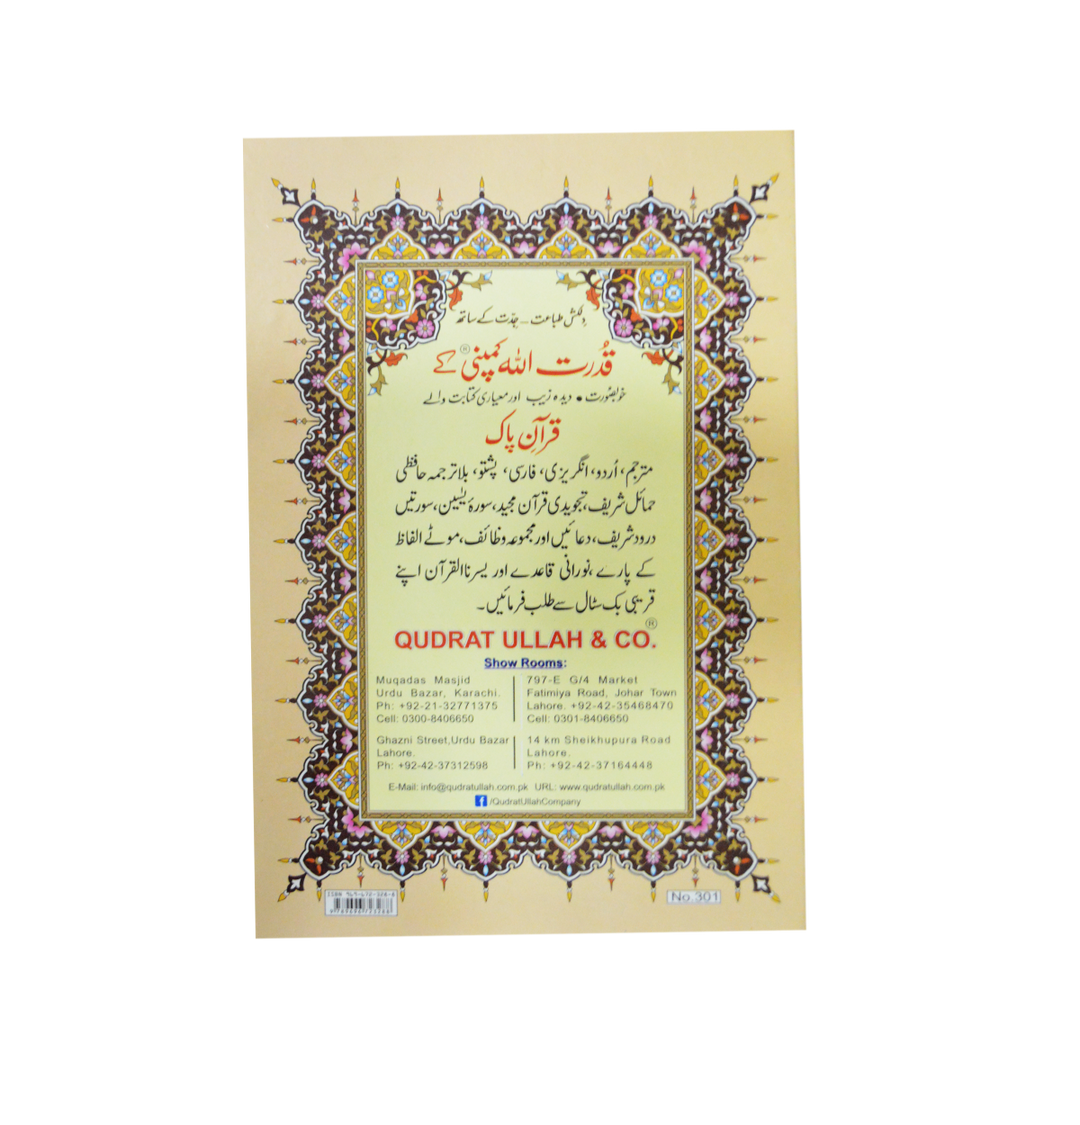 دلکش طباعت ـ جدّت کے ساتھ
قُدرت اللہ کمپنی® کے
خوبصورت • دیدہ زیب اور معیاری کتابت والے
قرآنِ پاک
مترجم، اُردو، انگریزی، فارسی، پشتو، بلاترجمہ حافظی
حمائل شریف، تجویدی قرآن مجید، سورۂ یٰسین، سورتیں
درود شریف، دعائیں اور مجموعہ وظائف، موٹے الفاظ
کے پارے، نورانی قاعدے اور یسرنا القرآن اپنے
قریبی بک سٹال سے طلب فرمائیں۔
QUDRAT ULLAH & CO.®
Show Rooms:
Muqadas Masjid
Urdu Bazar, Karachi.
Ph: +92-21-32771375
Cell: 0300-8406650
797-E G/4 Market
Fatimiya Road, Johar Town
Lahore. +92-42-35468470
Cell: 0301-8406650
Ghazni Street,Urdu Bazar
Lahore.
Ph: +92-42-37312598
14 km Sheikhupura Road
Lahore.
Ph: +92-42-37164448
E-Mail: info@qudratullah.com.pk URL: www.qudratullah.com.pk
f /QudratUllahCompany
ISBN
No.301